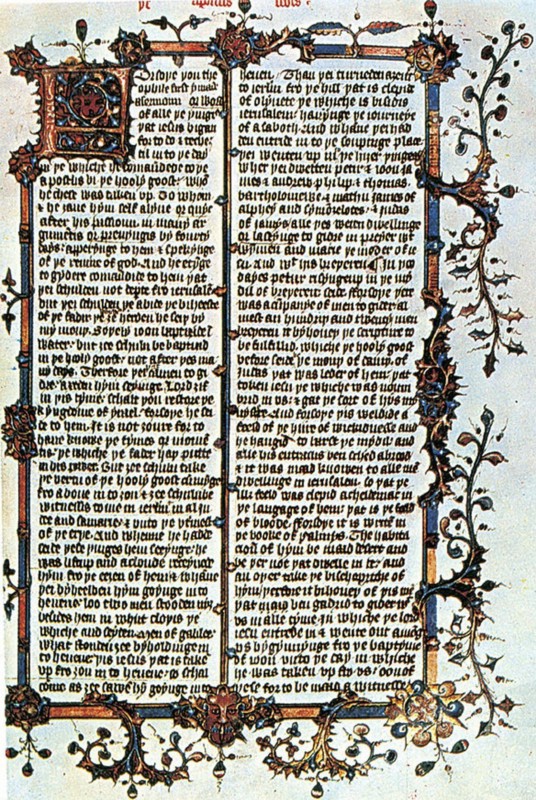 forsoþe you the
ophile first y maad
a sermoun of
of alle þe þingis
þat iesus bigan
for to do & teche:
til in to þe day
in þe whiche he comaundede to þe
apostlis bi þe hooly goost: who
he chees was taken up. To whom
& he ȝaue hym self alyue or quyk
after his passioun in many ar
gumentis or preuyngis bi fourty
days: apperynge to hem & spekynge
of þe rewme of god. And he etynge
to gydere comaundide to hem þat
þei schulden not departe fro ierusalem
but þei schulden þe abide þe biheeste
of þe fadir þe heerden he seiþ by
my mouþ. Soþely ioon baptisede
water: but ȝee schuln be baptisid
in þe holy goost: not after þes ma
ny days. Therfore þei camen to gi
dre: axeden hym seyinge. Lord ȝif
in þis tyme: schalt þou restore þe
kyngdome of israel. Forsoþe he sei
de to hem. It is not ȝoure for to
haue knowe þe tymes or momen
tis: þe whiche þe fader haþ putte
in his power. But ȝee schuln take
þe vertu of þe hooly goost comynge
fro aboue in to ȝou & ȝee schuln be
witnessis to me in ierusalem in al iu
dee and samarie: & unto þe utmest
of þe erþe. And whenne he hadde
seide þese þinges hem seeynge: he
was liftup and a cloude receyuede
hym fro þe eeyen of hem & whane
þei byheelden hym goynge in to
heuene: loo two men stooden ny
besides hem in whit cloþis þe
whiche and seyden. Men of galilee
What stonden ȝee byholdynge in
to heuene: þis iesus þat is take
up fro ȝou in to heuene: so schal
come as ȝee sawe hym goynge in to
heuen. Than þei turneden aȝein
to ierusalem fro þe hil þat is clepid
of olyuete þe whiche is bisidis
ierusalem: hauynge þe iourneye
of a saboth. And whane þei had
den entride in to þe soupynge place
þei wenten up in þe hiȝer þinges
wher þei dwelten petir & ioon ia
mes & andrew philip & thomas.
bartholomewe & mathu iames of
alphey and symon zelotes: & iudas
of iamys. alle þes weren dwellinge
or lastynge to gidre in preyer wiþ
wymmen and marie þe moder of ie
su. and wiþ his breþeren. In þo
dayes petur risynge up in þe myd
dil of breþeren seide. forsoþe þer
was a cumpanye of men to gider al
mest an hundrid and twenty men
breþeren it byhoueþ þe scripture to
be fulfillid. whiche þe hooly goost
before seide þe mouþ of dauiþ. of
iudas þat was leder of hem: þat
token iesu þe whiche was noum
brid in us: & gat þe sort of hys my
nystre. And forsoþe þis weldide a
feeld of þe hire of wickidnesse and
he hangid: to barst þe mydil and
alle his entrailis ben sched abrood
& it was maad knowen to alle men
dwellinge in ierusalem. so þat þe
ilk feeld was clepid acheldemac in
þe langage of hem: þat is þe feeld
of bloode. forsoþe it is write in
þe booke of psalmys. The habita
cioun of hym be maad desert and
be þer not þat dwelle in it: and
an oþer take þe bischopriche of
hym. þerfore it bihoueþ of þis men
þat ben gadrid to gider wiþ
us in alle tyme in whiche þe lord
iesu entride in & wente out among
us bygynnynge fro þe baptym
of ioon unto þe day in whiche
he was taken up fro us. oon of
þese for to be maad a witnesse